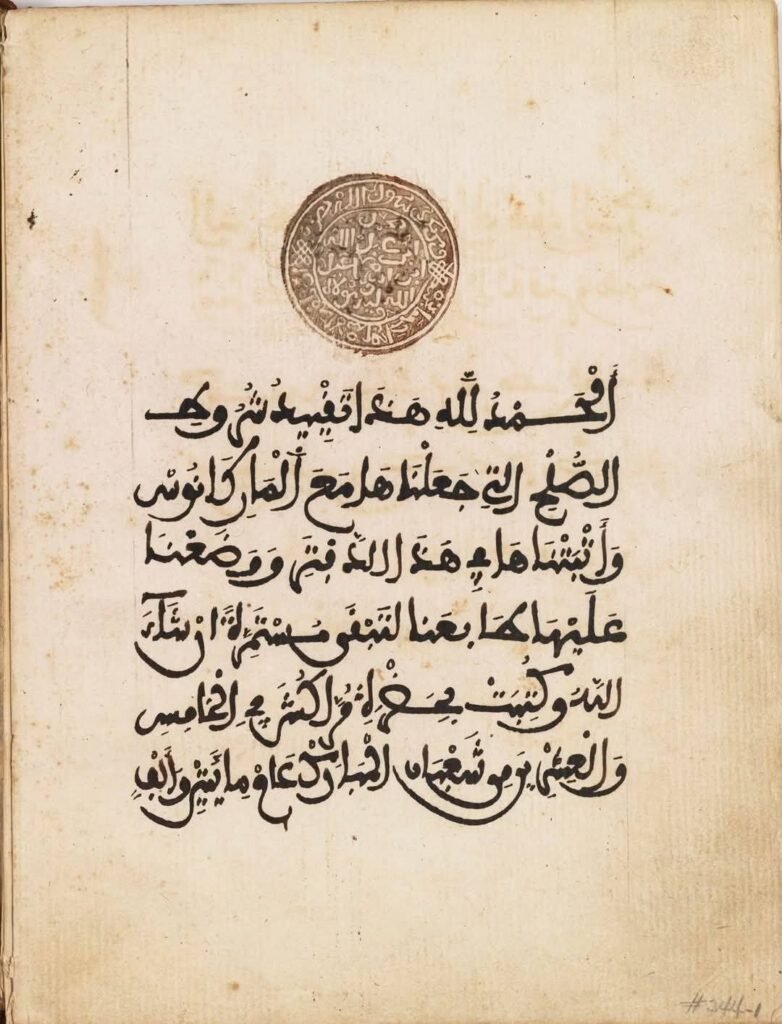 اَلْحَمْدُ لِلّهِ هَذَا تَقْيِيدُ شُرُوطِ
الصُّلْحِ التِي جَعَلْنَاهَا مَعَ اَلْمَارِكَانُوسْ
وَأَثْبَتْنَاهَا فِي هَذَا الدَّفْتَرِ وَوَضَعْنَا
عَلَيْهَا طَابِعَنا لِتَبْقَى مُسْتَمِرَّةً اِنْ شَآءَ
اللّهُ وَكُتِبَتْ بِحَضْرَةِ مُرَّاكُشَ فِي الْخَامِسِ
وَالْعِشْرِينَ مِنْ شَعْبَانَ الْمُبَارَكِ عَامَ مِائَتَيْنِ وَأَلْفٍ
#244-1